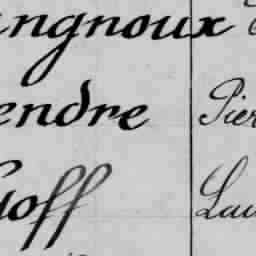 ngnoux
endre Pier
off Lau